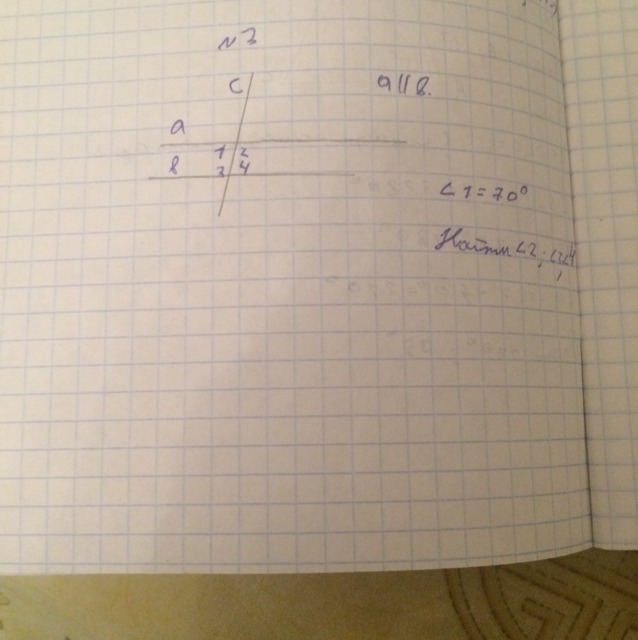 №3
c a||в.
a
1 2
в 3 4
∠1=70°
Найти ∠2; ∠3, ∠4